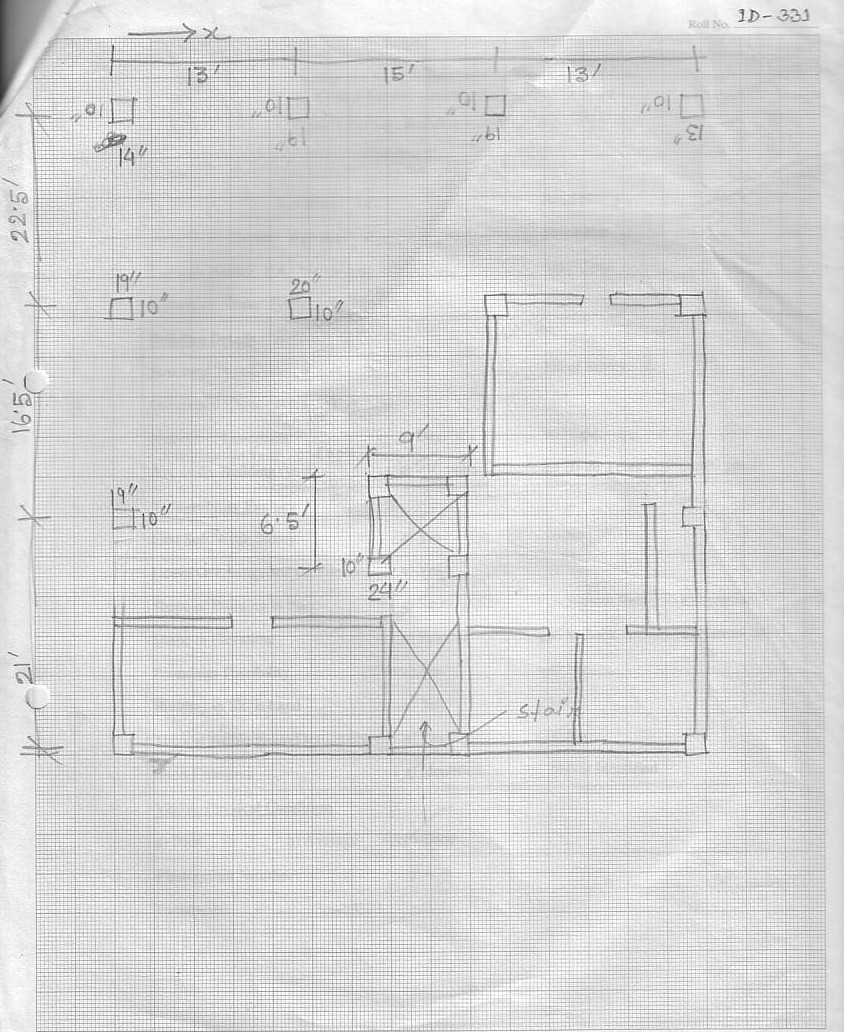 Roll No. ID-331
x
13' 15' 13'
10" 10" 10" 10"
14" 19" 19" 13"
22.5'
19" 20"
10" 10"
16.5'
9'
19"
10"
6.5'
10"
24"
21'
stair